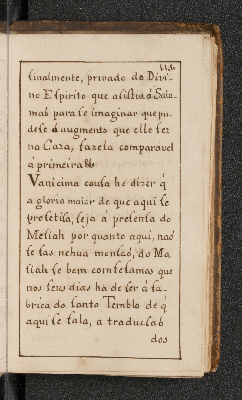 118
finalmente, privado do Divi-
no Espirito que asistia á Sala-
maõ para se imaginar que pu-
dese ó augmento que elle fez
na Caza, fazela comparavel
á primeira &
Vanicima cousa he dizer q̃
a gloria maior de que aqui se
profetisa, seja á presensa do
Mesiah por quanto aqui, naõ
se fas nehua mensaõ, do Ma
siah se bem confesamos que
nos seus dias ha de ser á fa-
brica do santo Templo de q̃
aqui se fala, a traducsaõ
dos